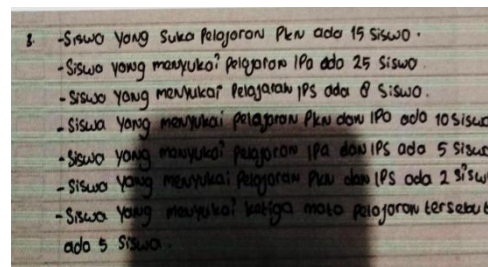 8. -Siswa yang suka pelajaran PKN ada 15 siswa.
-Siswa yang menyukai pelajaran IPA ada 25 siswa.
-Siswa yang menyukai pelajaran IPS ada 8 siswa.
-Siswa yang menyukai pelajaran PKN dan IPA ada 10 siswa
-Siswa yang menyukai pelajaran IPA dan IPS ada 5 siswa
-Siswa yang menyukai pelajaran PKN dan IPS ada 2 sisw
-Siswa yang menyukai ketiga mata pelajaran tersebut
ada 5 siswa.